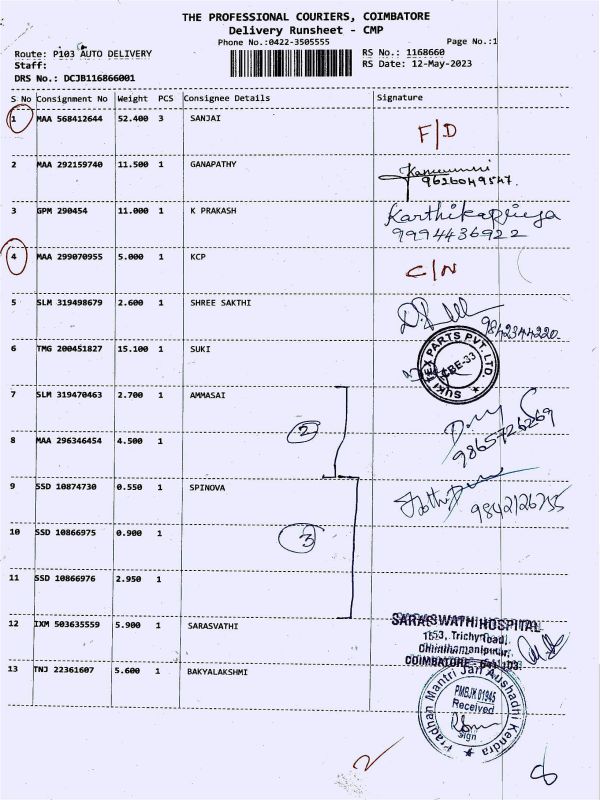 THE PROFESSIONAL COURIERS, COIMBATORE
Delivery Runsheet - CMP
Phone No.:0422-3505555
Page No.:1
Route: P103 AUTO DELIVERY
RS No.: 1168660
Staff:
RS Date: 12-May-2023
DRS No.: DCJB116866001
S No Consignment No Weight PCS Consignee Details Signature
1 MAA 568412644 52.400 3 SANJAI F/D
2 MAA 292159740 11.500 1 GANAPATHY
9626049547
3 GPM 290454 11.000 1 K PRAKASH Karthikapriya
9994436922
4 MAA 299070955 5.000 1 KCP C/N
5 SLM 319498679 2.600 1 SHREE SAKTHI
9842344220
6 TMG 200451827 15.100 1 SUKI
SUKI TEX PARTS PVT. LTD.
CBE-33
7 SLM 319470463 2.700 1 AMMASAI
2
9865726269
8 MAA 296346454 4.500 1
9 SSD 10874730 0.550 1 SPINOVA
9842126755
10 SSD 10866975 0.900 1
3
11 SSD 10866976 2.950 1
12 IXM 503635559 5.900 1 SARASVATHI
SARASWATHI HOSPITAL
1153, Trichy Road,
Chinthamanipudur,
COIMBATORE - 641 103.
13 TNJ 22361607 5.600 1 BAKYALAKSHMI
Pradhan Mantri Jan Aushadhi Kendra
PMBJK 01945
Received
Sign
2
8